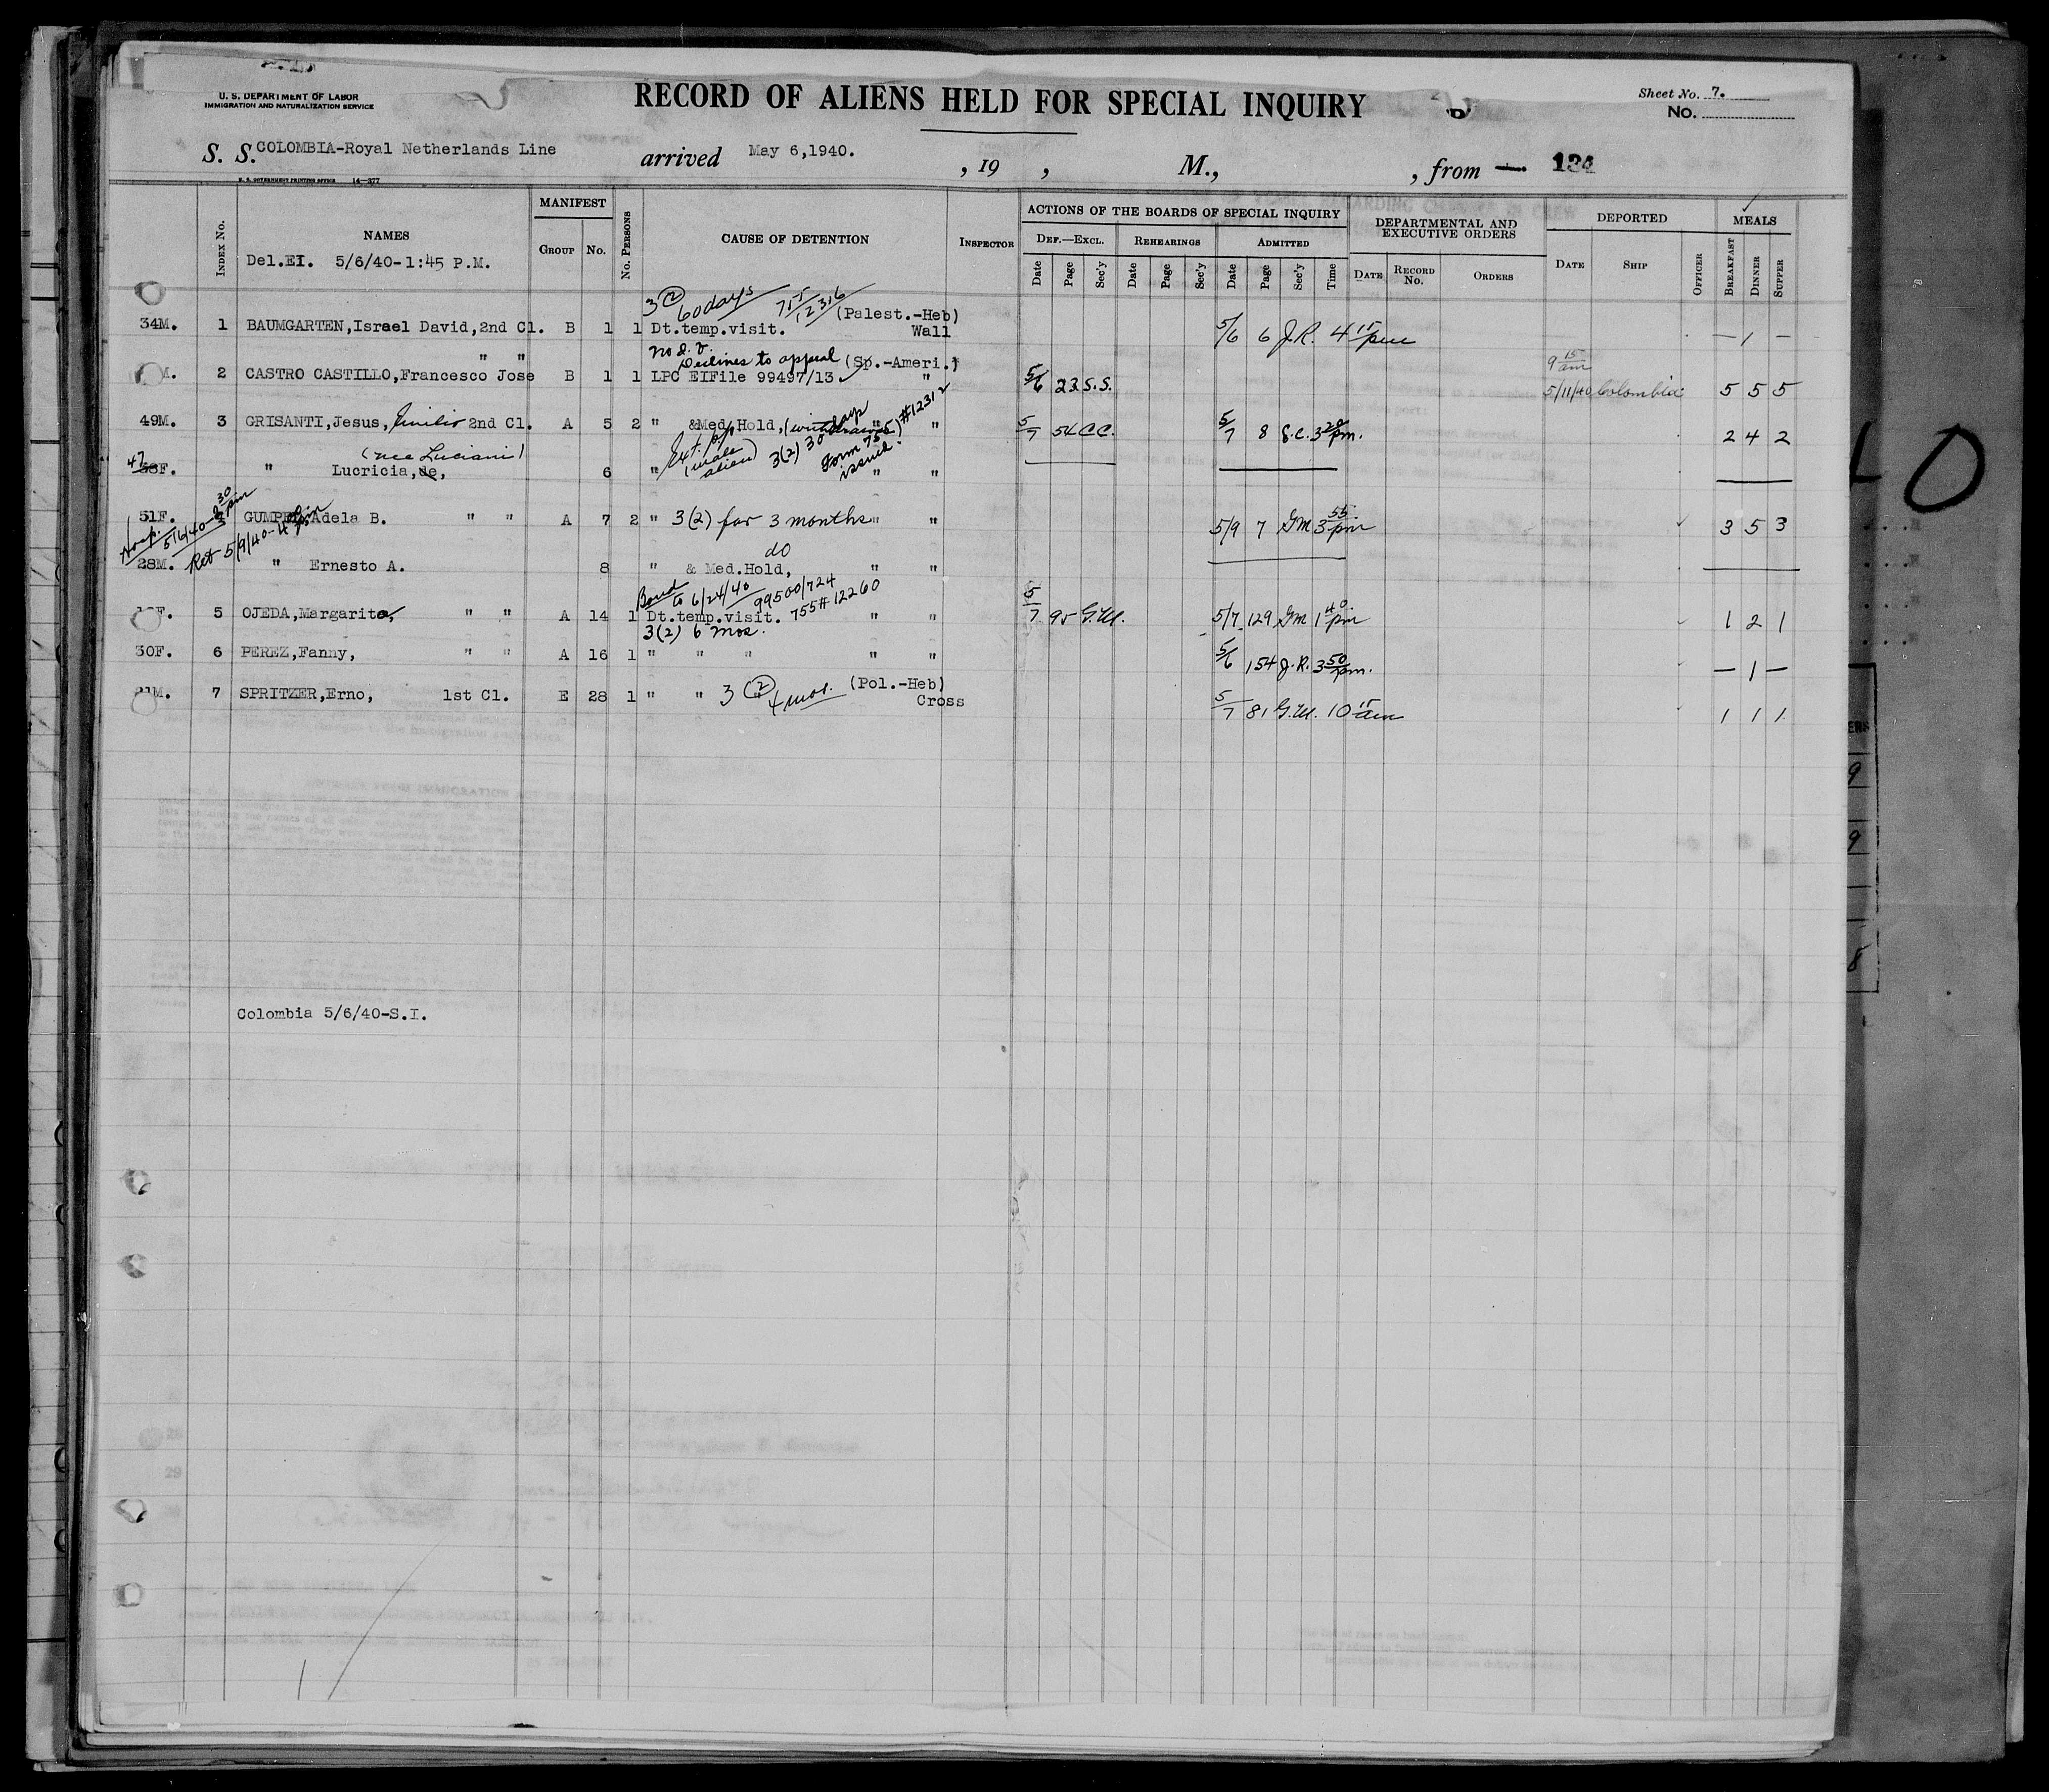 U. S. DEPARTMENT OF LABOR
IMMIGRATION AND NATURALIZATION SERVICE
RECORD OF ALIENS HELD FOR SPECIAL INQUIRY
Sheet No. 7.
No.
S. S. COLOMBIA-Royal Netherlands Line arrived May 6,1940. , 19 , M., , from — 134
U. S. GOVERNMENT PRINTING OFFICE 14—377
Index No.
NAMES
Del.EI. 5/6/40-1:45 P.M.
MANIFEST
Group No.
No. Persons
CAUSE OF DETENTION
Inspector
ACTIONS OF THE BOARDS OF SPECIAL INQUIRY
Def.—Excl. Rehearings Admitted
Date Page Sec'y Date Page Sec'y Date Page Sec'y Time
DEPARTMENTAL AND EXECUTIVE ORDERS
Date Record No. Orders
DEPORTED
Date Ship Officer
MEALS
Breakfast Dinner Supper
3(2) 60 days 755/12316 (Palest.-Heb)
34M. 1 BAUMGARTEN,Israel David,2nd Cl. B 1 1 Dt.temp.visit. Wall 5/6 6 J.R. 4 15 pm — 1 —
Declines to appeal (Sp.-Ameri.)
" " 9 15 am
M. 2 CASTRO CASTILLO,Francesco Jose B 1 1 LPC EIFile 99497/13 " 5/6 22 S.S. 5/11/40 Colombia 5 5 5
49M. 3 GRISANTI,Jesus, Emilio 2nd Cl. A 5 2 " &Med.Hold,(withdrawn) " #12312 5/7 54 C.C. 5/7 8 S.C. 3 20 pm. 2 4 2
(nee Luciani) (male alien) 3(2) 30 days Form 755 issued.
47 F. " Lucricia,de, 6 " " "
Hosp. 5/6/40-2 30 pm
51F. GUMPEL,Adela B. " " A 7 2 " 3(2) for 3 months " " 5/9 7 GM 3 55 pm 3 5 3
Ret 5/9/40-4
do
28M. " Ernesto A. 8 " & Med.Hold, " "
Bond to 6/24/40 99500/724
F. 5 OJEDA,Margarita, " " A 14 1 Dt.temp.visit. 755#12260 " " 5/7 95 G.M. 5/7 129 GM 1 40 pm 1 2 1
3(2) 6 mos.
30F. 6 PEREZ,Fanny, " " A 16 1 " " " " " 5/6 154 J.R. 3 50 pm. — 1 —
21M. 7 SPRITZER,Erno, 1st Cl. E 28 1 " " 3(2) 4 mos. (Pol.-Heb) Cross 5/7 81 G.M. 10 15 am 1 1 1
Colombia 5/6/40-S.I.
29